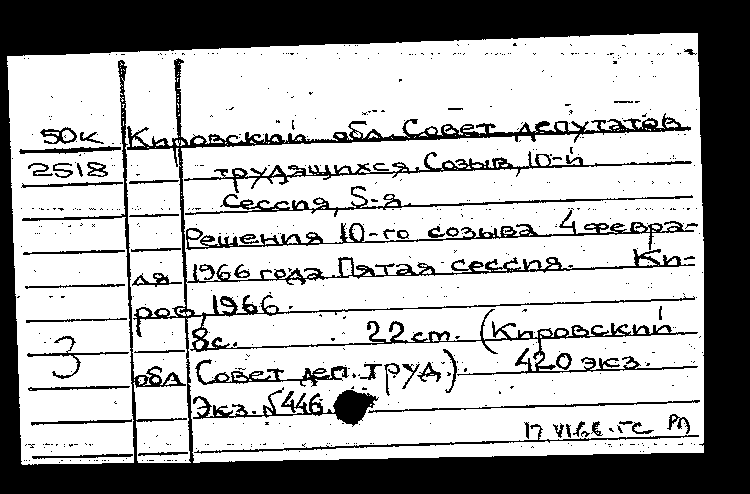 50к Кировский обл. Совет депутатов
2518 трудящихся. Созыв, 10-й
сессия, 5-я.
Решения 10-го созыва 4 февра-
ля 1966 года. Пятая сессия. Ки-
ров, 1966.
8с. 22 ст. (Кировский
3 обл Совет деп. труд.). 420 экз.
Экз. №446.
17 VI 66. ГС РЛ